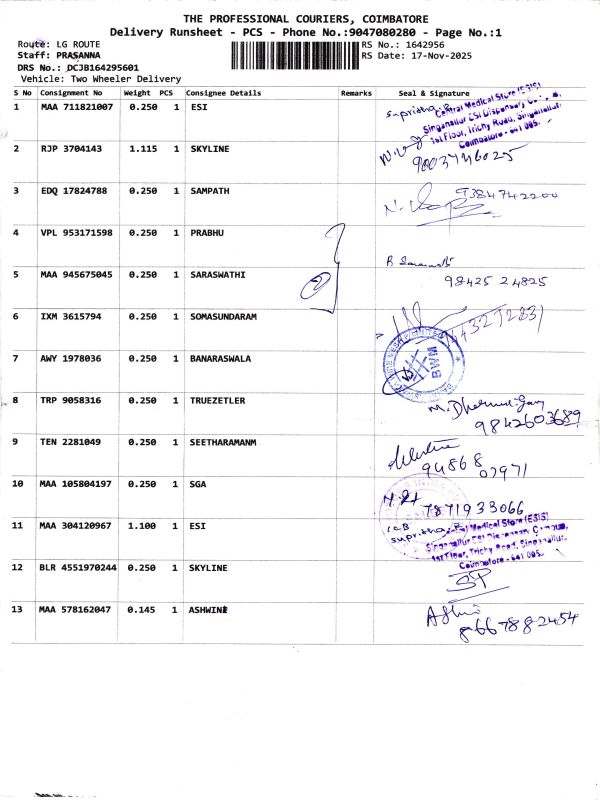 THE PROFESSIONAL COURIERS, COIMBATORE
Delivery Runsheet - PCS - Phone No.:9047080280 - Page No.:1
Route: LG ROUTE
RS No.: 1642956
Staff: PRASANNA
RS Date: 17-Nov-2025
DRS No.: DCJB164295601
Vehicle: Two Wheeler Delivery
S No Consignment No Weight PCS Consignee Details Remarks Seal & Signature
1 MAA 711821007 0.250 1 ESI
supritha.R
Central Medical Store (ESIS)
Singanallur ESI Dispensary
1st Floor, Trichy Road, Singanallur,
Coimbatore - 641 005.
2 RJP 3704143 1.115 1 SKYLINE
9003746025
3 EDQ 17824788 0.250 1 SAMPATH
9384742200
4 VPL 953171598 0.250 1 PRABHU
5 MAA 945675045 0.250 1 SARASWATHI
98425 24825
6 IXM 3615794 0.250 1 SOMASUNDARAM
7 AWY 1978036 0.250 1 BANARASWALA
BWW
8 TRP 9058316 0.250 1 TRUEZETLER
9842603689
9 TEN 2281049 0.250 1 SEETHARAMANM
94868
07971
10 MAA 105804197 0.250 1 SGA
7871933066
11 MAA 304120967 1.100 1 ESI
supritha.R
Medical Store (ESIS)
Singanallur ESI Dispensary Campus,
1st Floor, Trichy Road, Singanallur,
Coimbatore - 641 005.
12 BLR 4551970244 0.250 1 SKYLINE
13 MAA 578162047 0.145 1 ASHWINI
8667882454